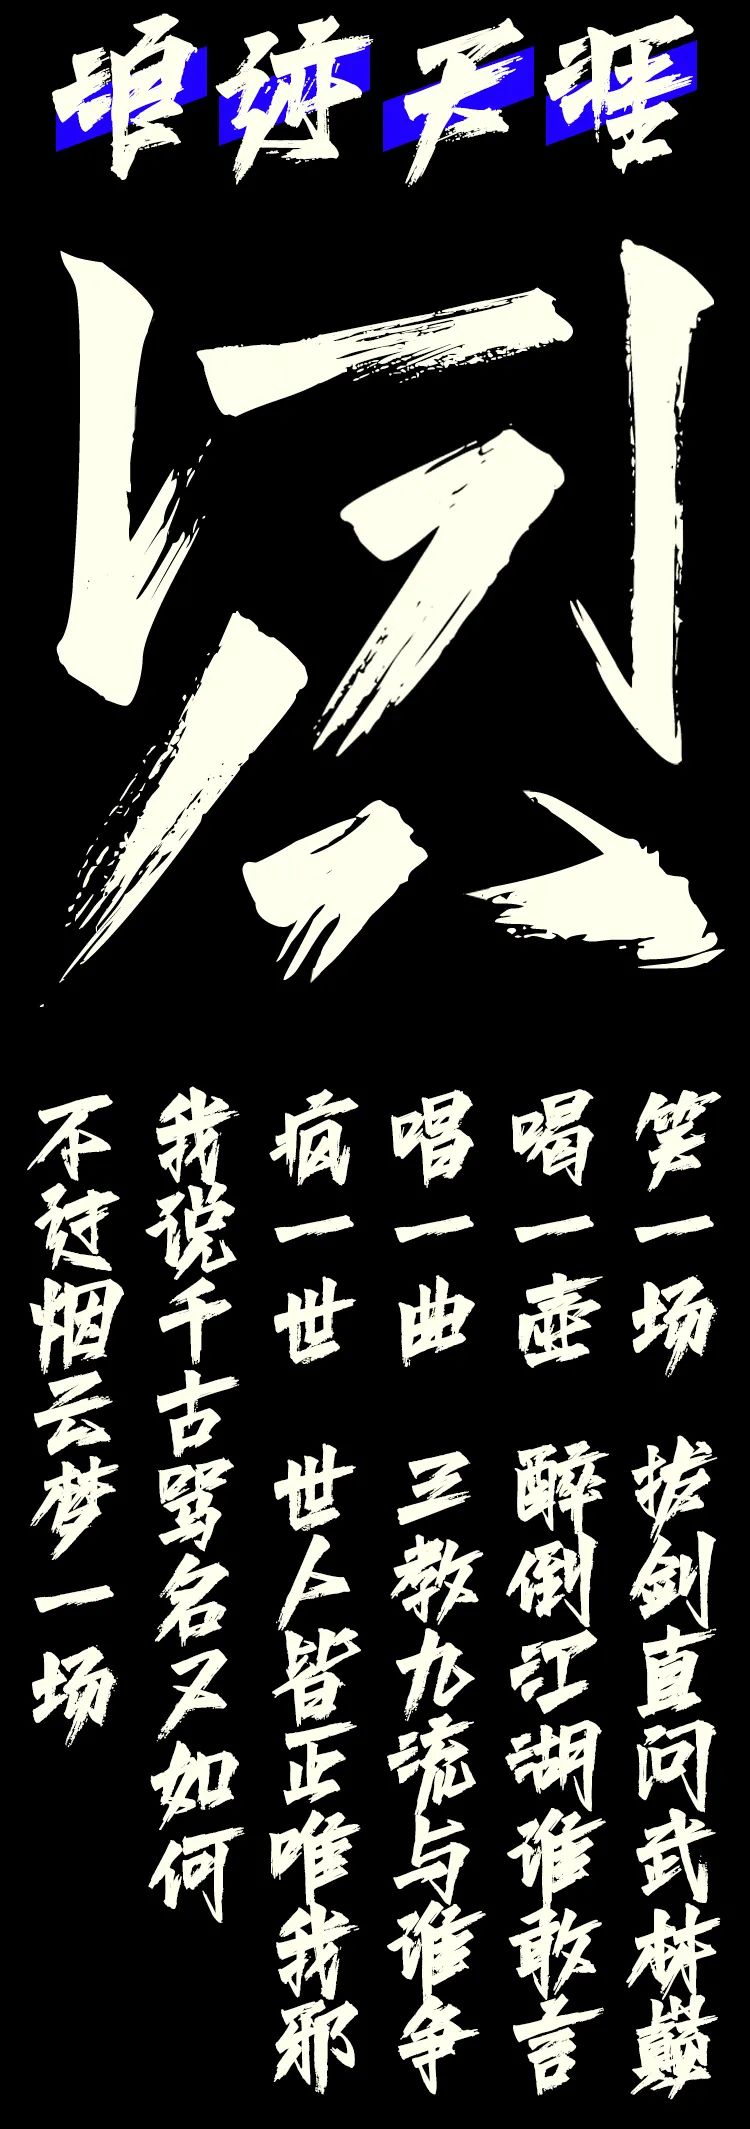 浪迹天涯
笑一场 拔剑直问武林巅
喝一壶 醉倒江湖谁敢言
唱一曲 三教九流与谁争
疯一世 世人皆正唯我邪
我说千古骂名又如何
不过烟云梦一场